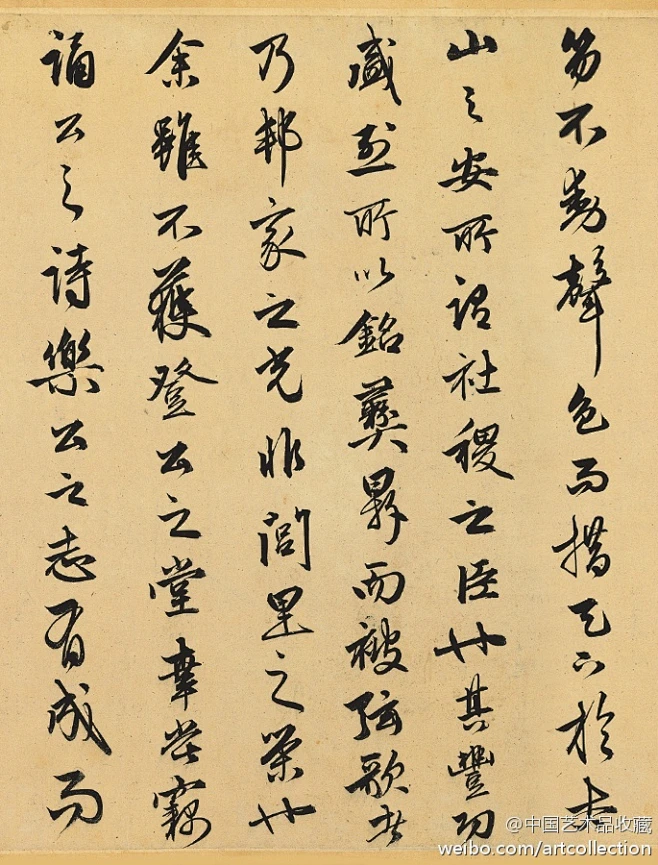 笏不動聲色而措天下於泰
山之安所謂社稷之臣也其豐功
盛烈所以銘彝鼎而被弦歌者
乃邦家之光非閭里之榮也
余雖不獲登公之堂幸嘗竊
誦公之詩樂公之志有成而
@中国艺术品收藏
weibo.com/artcollection